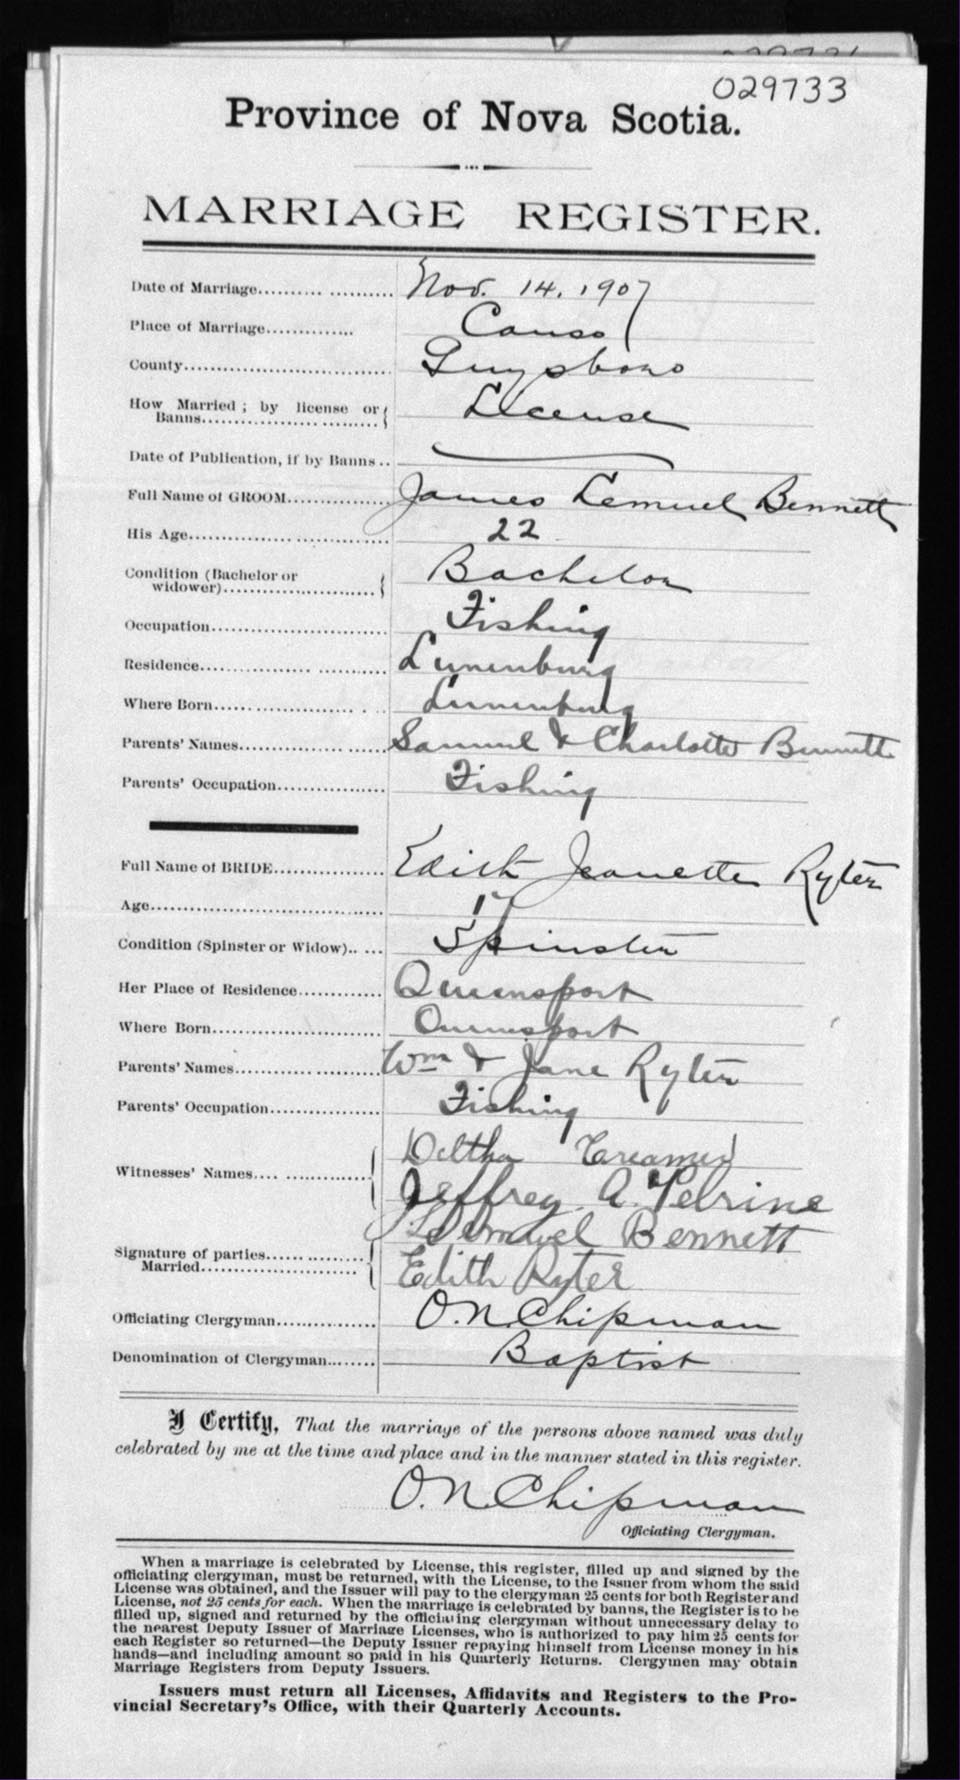 029733
Province of Nova Scotia.
MARRIAGE REGISTER.
Date of Marriage Nov. 14, 1907
Place of Marriage Canso
County Guysboro
How Married; by license or
Banns License
Date of Publication, if by Banns
Full Name of GROOM James Lemuel Bennett
His Age 22
Condition (Bachelor or
widower) Bachelor
Occupation Fishing
Residence Lunenburg
Where Born Lunenburg
Parents' Names Samuel & Charlotte Bennett
Parents' Occupation Fishing
Full Name of BRIDE Edith Jeanette Ryter
Age 17
Condition (Spinster or Widow) Spinster
Her Place of Residence Queensport
Where Born Queensport
Parents' Names Wm & Jane Ryter
Parents' Occupation Fishing
Witnesses' Names Creamer
Jeffrey A. Pelrine
Signature of parties
Married J. Lemuel Bennett
Edith Ryter
Officiating Clergyman O.N. Chipman
Denomination of Clergyman Baptist
I Certify, That the marriage of the persons above named was duly
celebrated by me at the time and place and in the manner stated in this register.
O.N. Chipman
Officiating Clergyman.
When a marriage is celebrated by License, this register, filled up and signed by the
officiating clergyman, must be returned, with the License, to the Issuer from whom the said
License was obtained, and the Issuer will pay to the clergyman 25 cents for both Register and
License, not 25 cents for each. When the marriage is celebrated by banns, the Register is to be
filled up, signed and returned by the officiating clergyman without unnecessary delay to
the nearest Deputy Issuer of Marriage Licenses, who is authorized to pay him 25 cents for
each Register so returned—the Deputy Issuer repaying himself from License money in his
hands—and including amount so paid in his Quarterly Returns. Clergymen may obtain
Marriage Registers from Deputy Issuers.
Issuers must return all Licenses, Affidavits and Registers to the Pro-
vincial Secretary's Office, with their Quarterly Accounts.